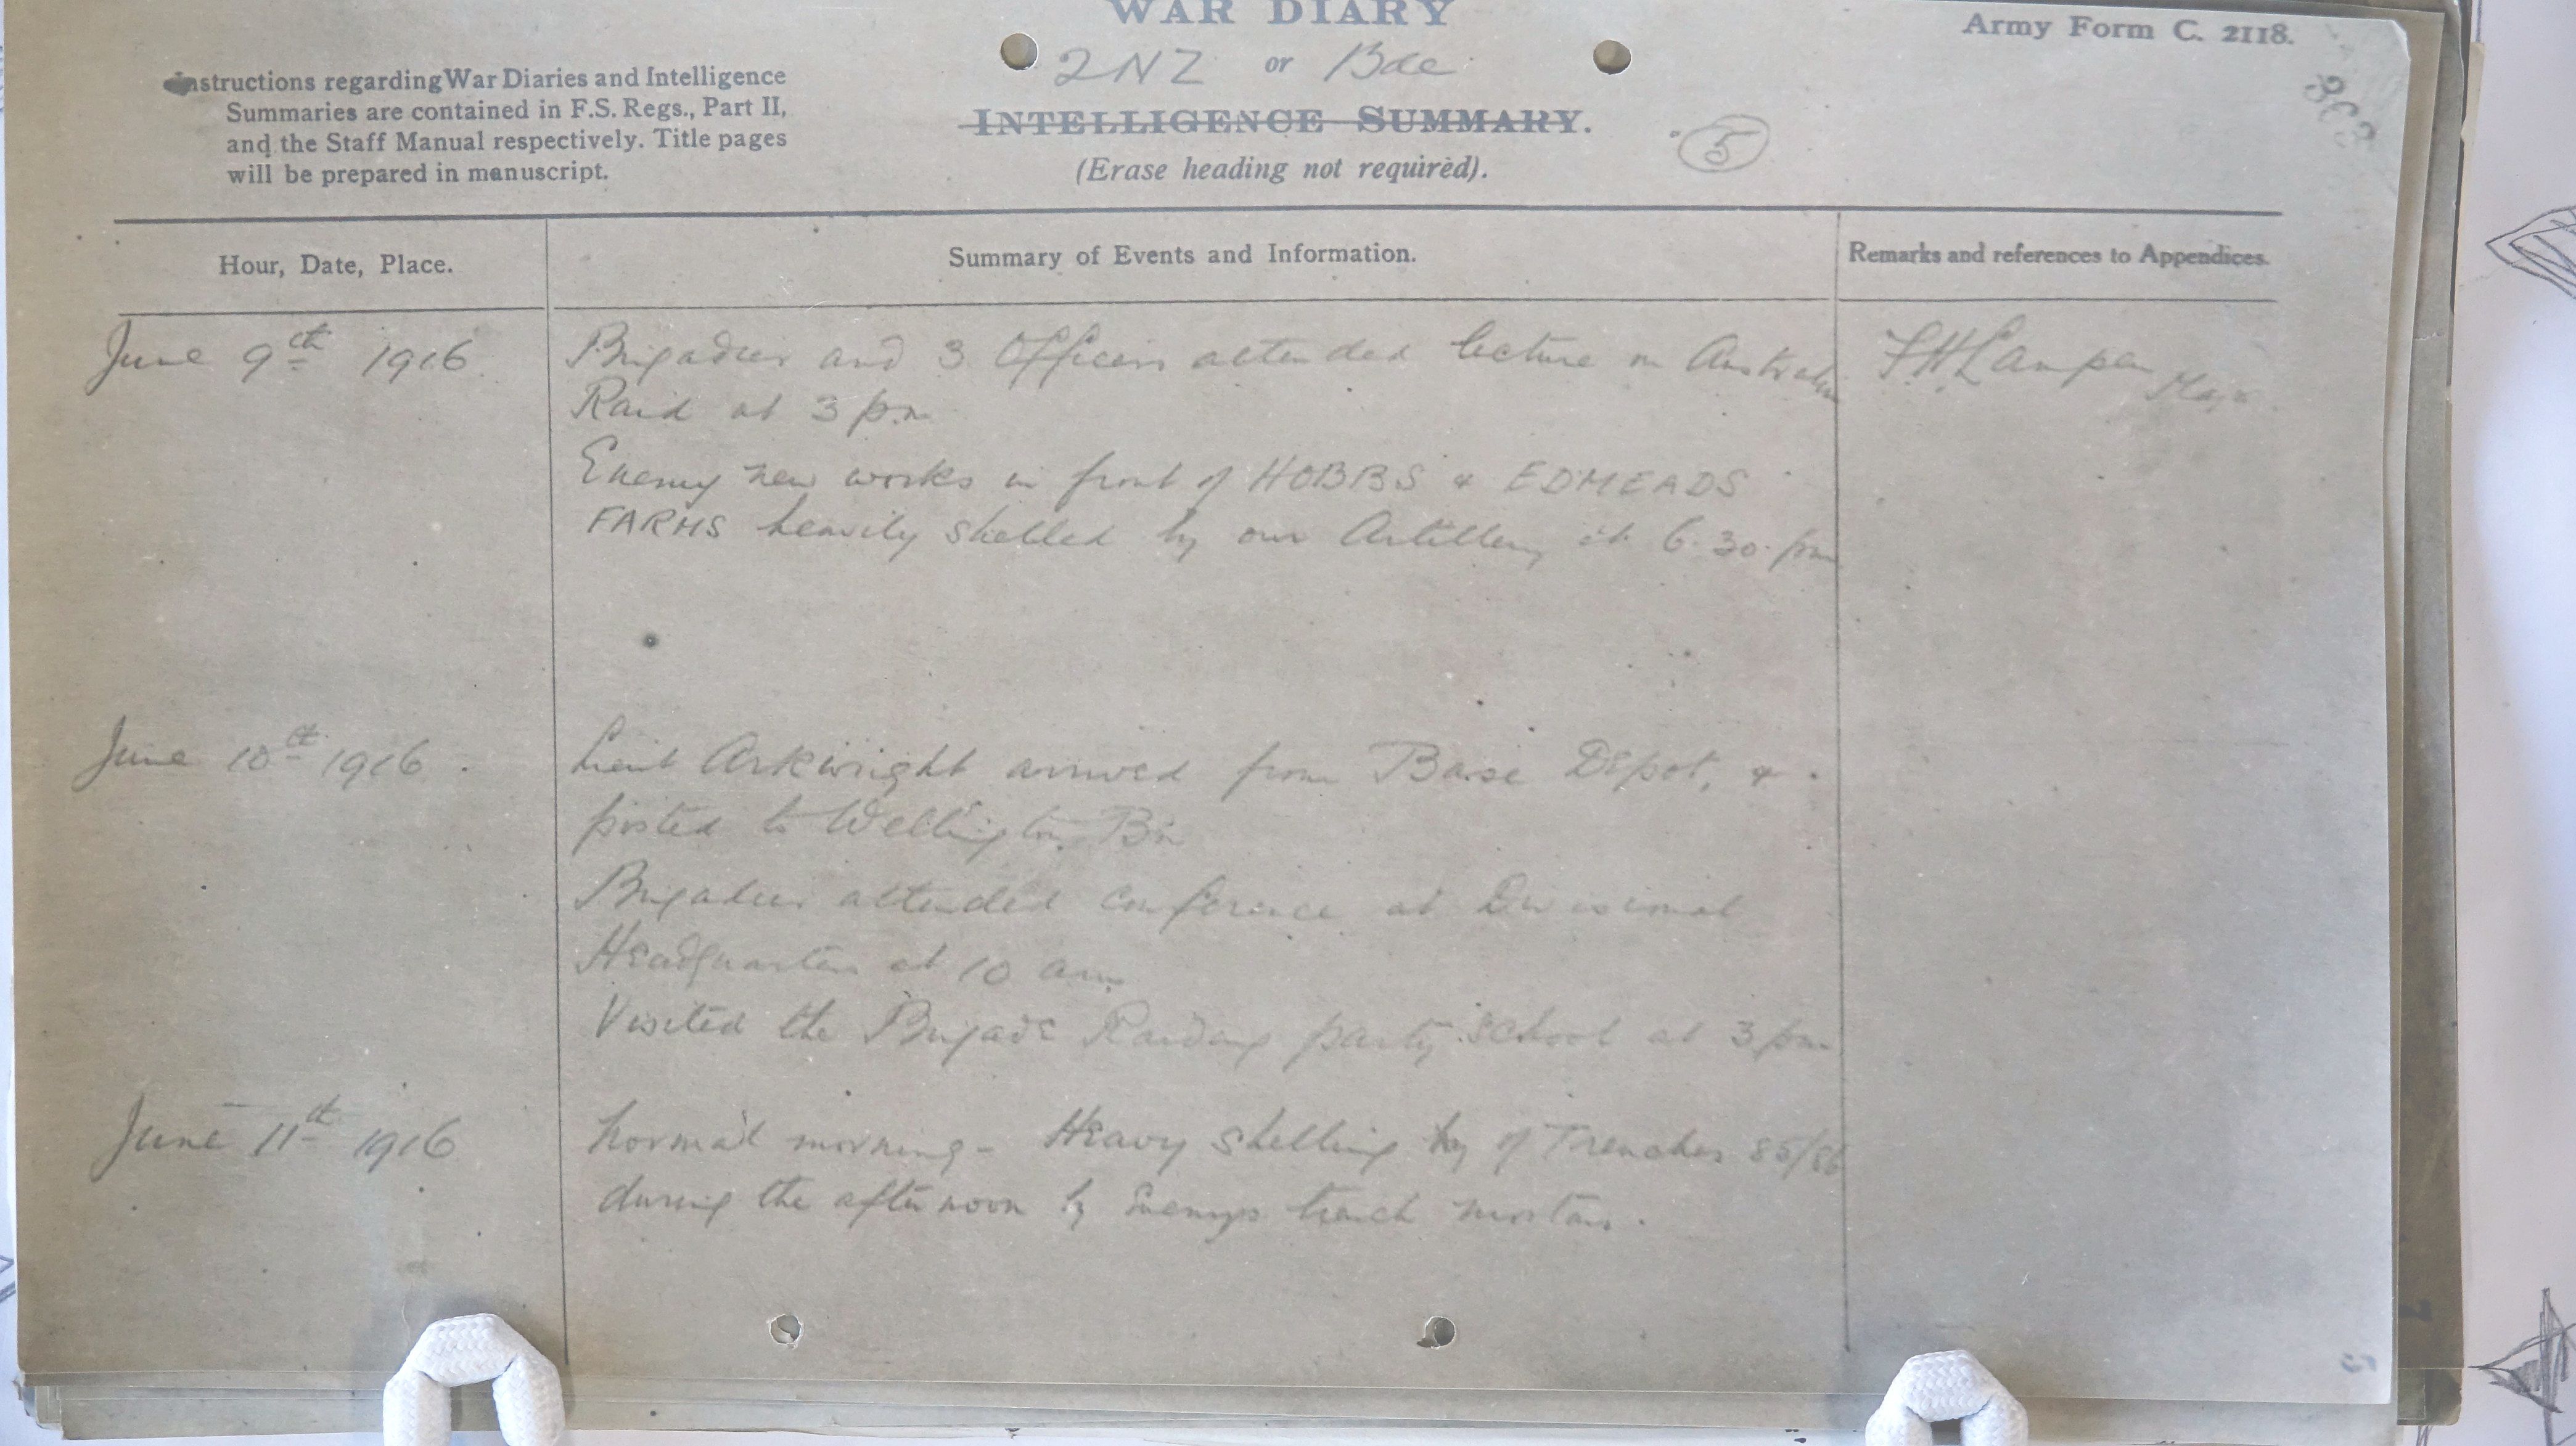 WAR DIARY
Army Form C. 2118.
2 NZ or Bde
Instructions regarding War Diaries and Intelligence
Summaries are contained in F.S. Regs., Part II,
and the Staff Manual respectively. Title pages
will be prepared in manuscript.
INTELLIGENCE SUMMARY.
(Erase heading not required).
5
Hour, Date, Place.
Summary of Events and Information.
Remarks and references to Appendices.
June 9th 1916.
Brigadier and 3 Officers attended lecture on Australian
Raid at 3 p.m
Enemy new works in front of HOBBS & EDMEADS
FARMS heavily shelled by our Artillery at 6.30. pm
Major
June 10th 1916.
Lieut Arkwright arrived from Base Depot, &
posted to Wellington Bn
Brigadier attended conference at Divisional
Headquarters at 10 am
Visited the Brigade Raiding party school at 3 pm
June 11th 1916
Normal morning - Heavy shelling by of Trenches 85/86
during the afternoon by Enemys trench mortars.